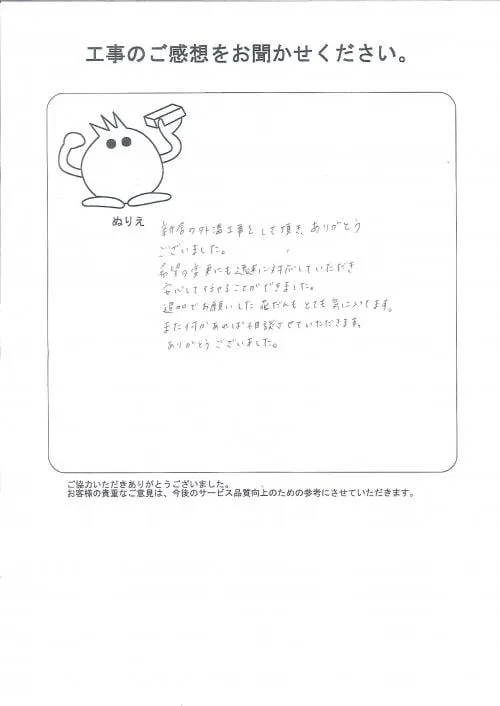 工事のご感想をお聞かせください。
ぬりえ
新居の外溝工事をして頂き、ありがとう
ございました。
希望の変更にも迅速に対応していただき
安心して任せることができました。
追加でお願いした花だんもとても気に入ってます。
また何かあれば相談させていただきます。
ありがとうございました。
ご協力いただきありがとうございました。
お客様の貴重なご意見は、今後のサービス品質向上のための参考にさせていただきます。